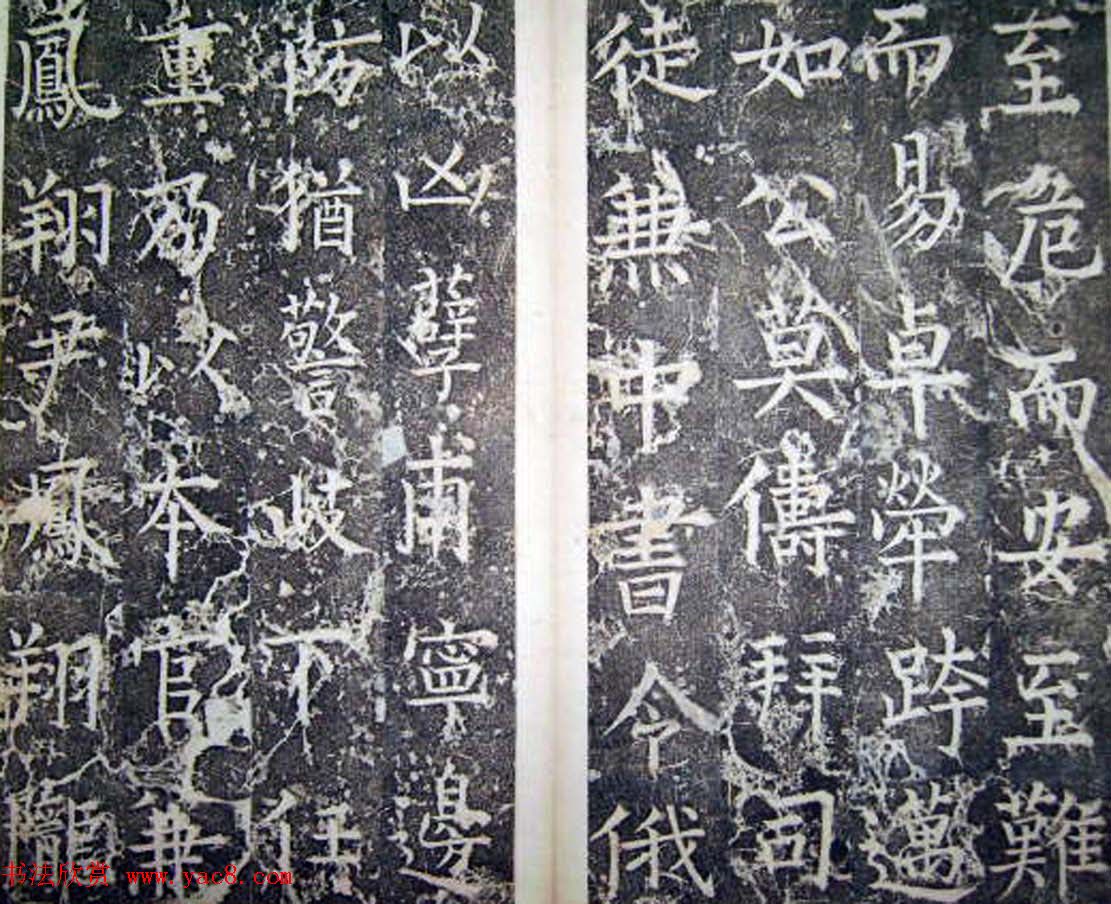 至危而安至難
而易卓犖跨邁
如公莫儔拜司
徒兼中書令俄
以凶孽甫寧邊
防猶警岐下任
重以本官兼
鳳翔尹鳳翔隴
书法欣赏 www.yac8.com